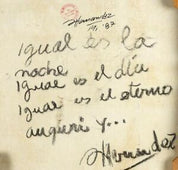 Hernandez
'87
Igual es la
noche
Igual es el día
Igual es el eterno
auguri y...
Hernandez